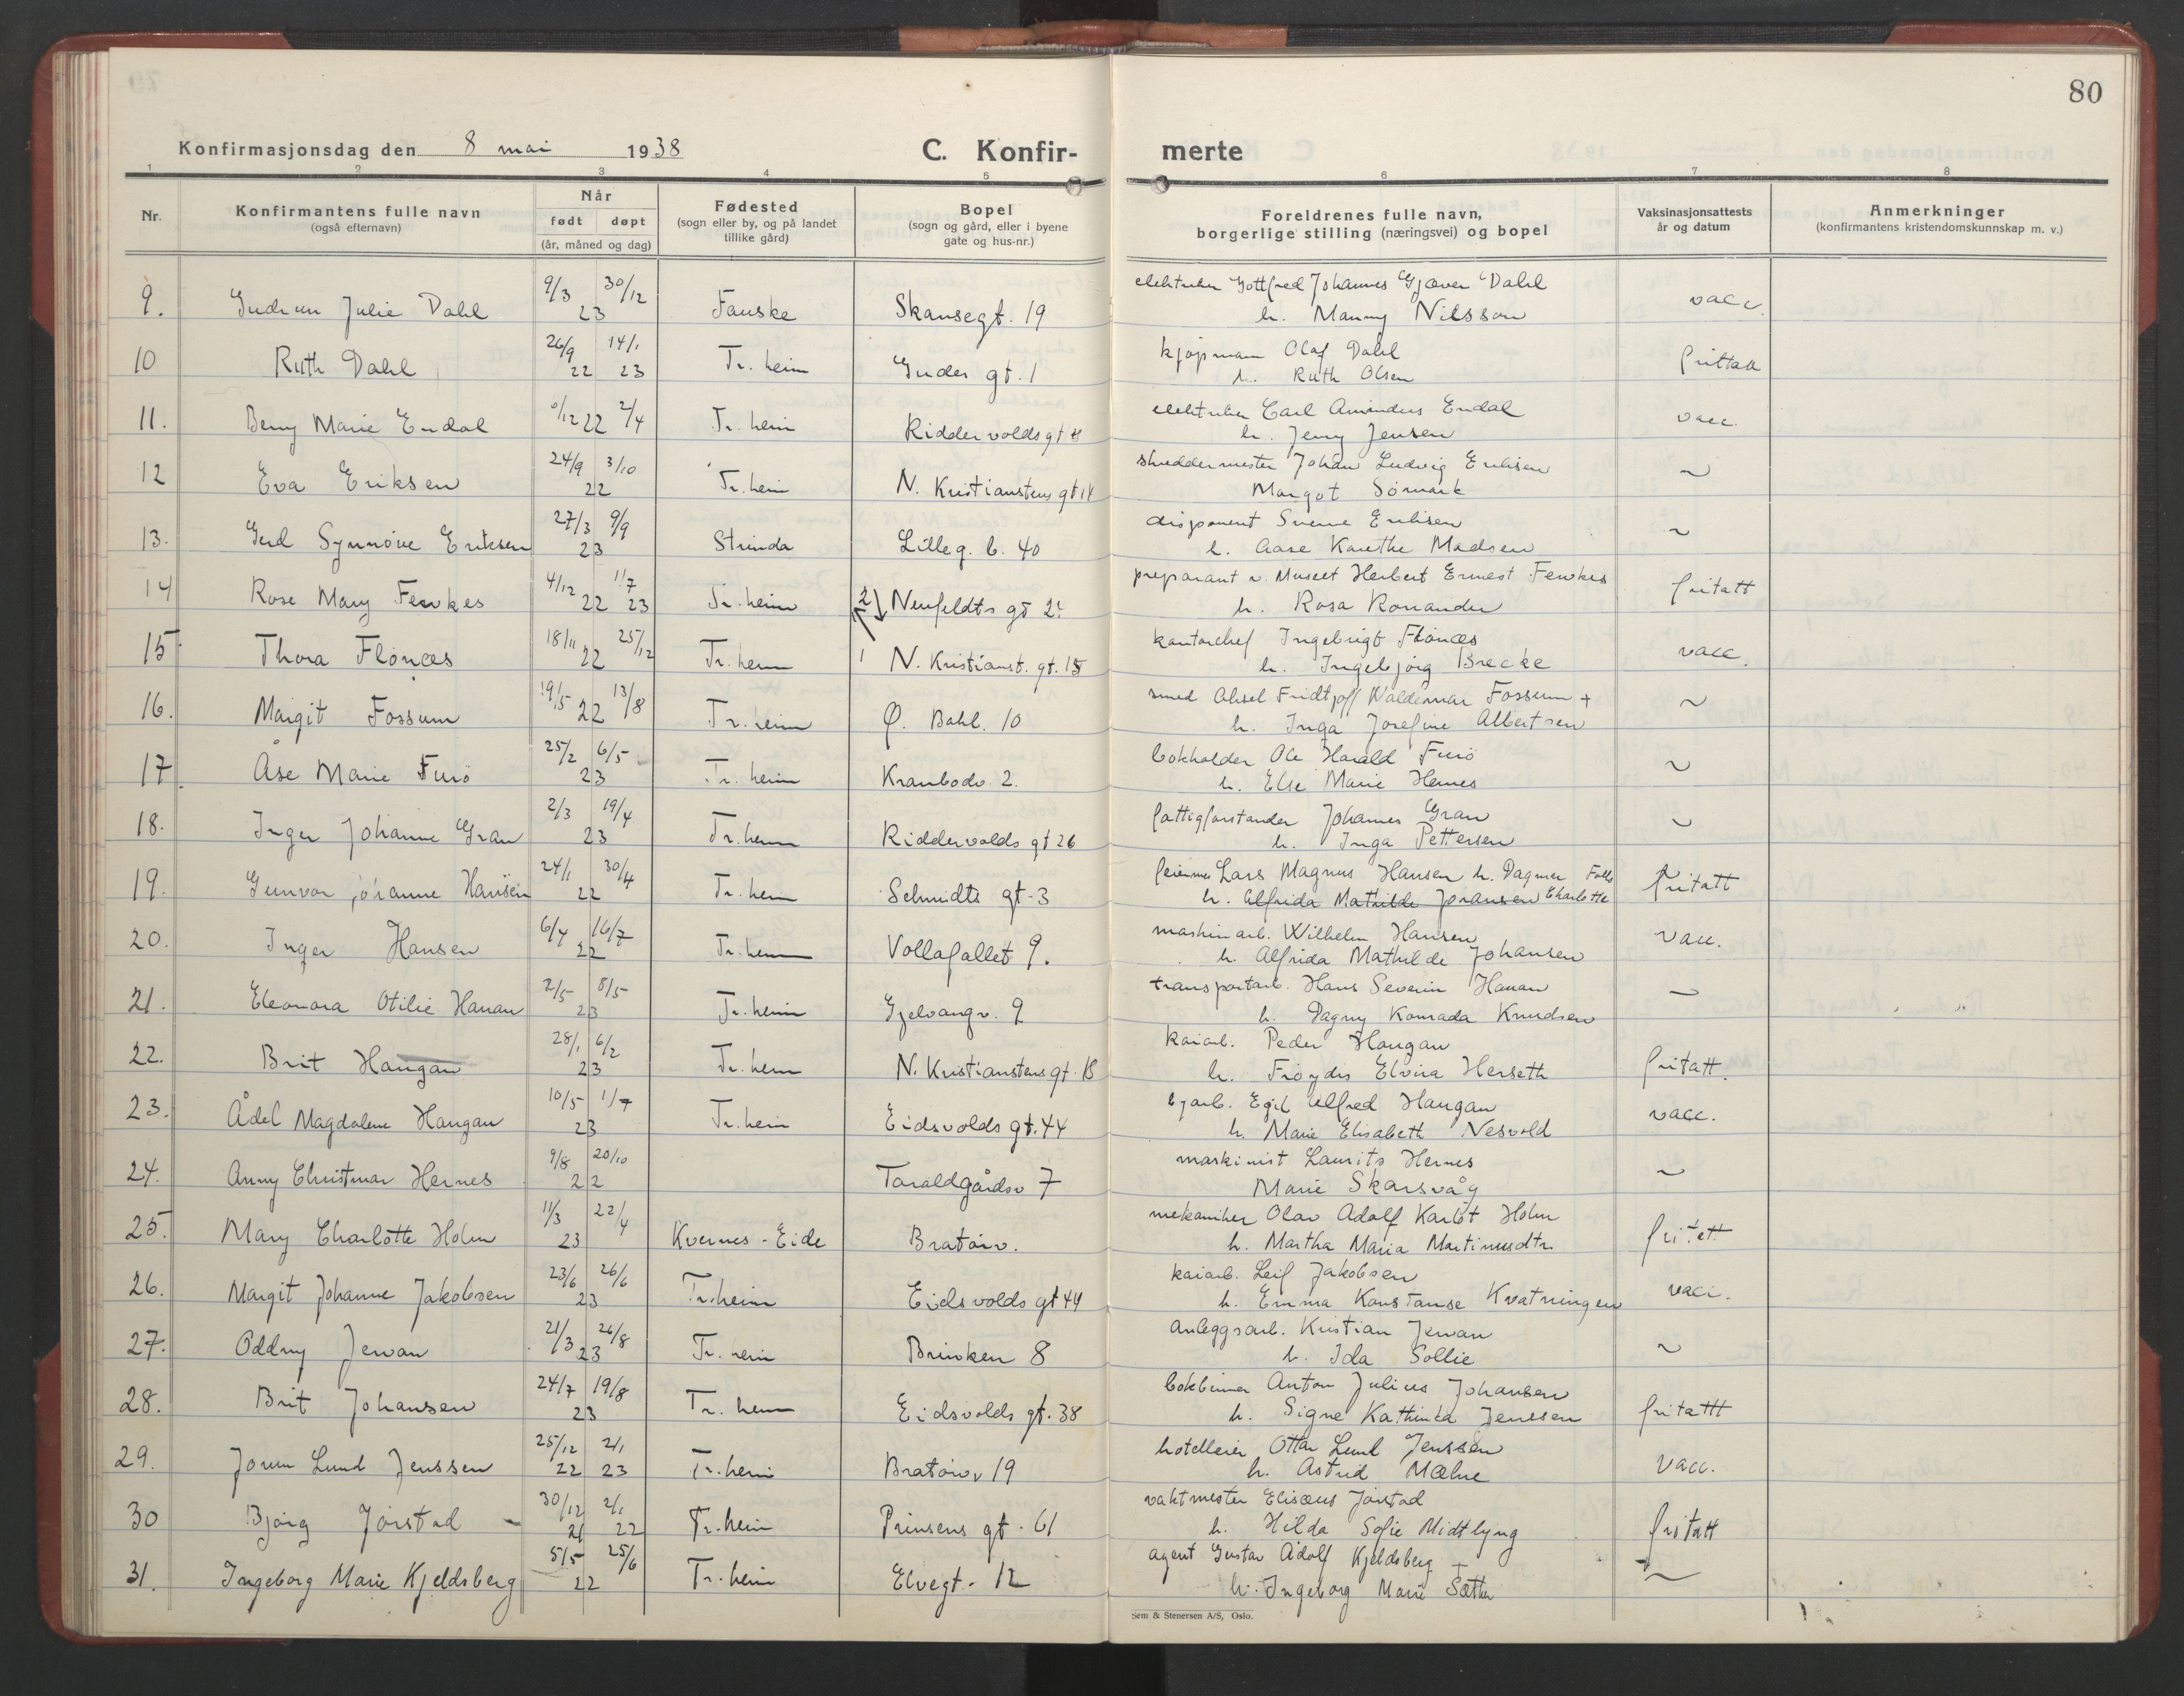 80
Konfirmasjonsdag den 8 mai 1938
C. Konfir-
merte
1 2 3 4 5 6 7 8
Nr.
Konfirmantens fulle navn
(også efternavn)
Når
født døpt
(år, måned og dag)
Fødested
(sogn eller by, og på landet
tillike gård)
Bopel
(sogn og gård, eller i byene
gate og hus-nr.)
Foreldrenes fulle navn,
borgerlige stilling (næringsvei) og bopel
Vaksinasjonsattests
år og datum
Anmerkninger
(konfirmantens kristendomskunnskap m. v.)
9. Gudrun Julie Dahl 9/3 30/12 23 Fauske Skansegt. 19 Gottfred Johannes Gjæver Dahl vacc.
h. Manny Nilsson
10 Ruth Dahl 26/9 22 14/1 23 Tr. heim Gudes gt. 1 kjøpmann Olaf Dahl
h. Ruth Olsen
11. Beny Marie Endal /12 22 2/4 Tr. heim Riddervolds gt 8 Carl Amandus Endal vacc.
h. Jenny Jensen
12 Eva Eriksen 24/9 3/10 22 Tr. heim N. Kristianstens gt 14 skreddermester Johan Ludvig Eriksen ~
Margot Sömark
13. Gerd Synnöve Eriksen 27/3 9/9 23 Strinda Lilleg. b. 40 disponent Sverre Eriksen ~
h. Aase Karethe Madsen
14 Rose Mary Fewkes 4/12 22 1/7 23 Tr. heim 2) Neufeldts gt 2 preparant v. Museet Herbert Ernest Fewkes fritatt
h. Rosa Ronander
15 Thora Flönæs 18/11 25/12 22 Tr. heim 1 N. Kristianst. gt. 15 kontorchef Ingebrigt Flönæs vacc.
h. Ingebjörg Brecke
16. Margit Fossum 19/5 22 13/8 Tr. heim Ø. Bakl. 10 smed Aksel Fridtjoff Waldemar Fossum + ~
h. Inga Josefine Albertsen
17. Åse Marie Furö 25/2 6/5 23 Tr. heim Krambodv. 2. bokholder Ole Harald Furö ~
h. Else Marie Hernes
18. Inger Johanne Gran 2/3 19/4 23 Tr. heim Riddervolds gt 26 fattigforstander Johannes Gran ~
h. Inga Pettersen
19. Gunvor Johanne Hansen 24/1 30/4 22 Tr. heim Schmidts gt. 3 Lars Magnus Hansen h. Dagmar fritatt
h. Alfrida Mathilde Johansen Charlotte
20. Inger Hansen 6/4 16/7 22 Tr. heim Vollafallet 9. maskinarb. Wilhelm Hansen vacc.
h. Alfrida Mathilde Johansen
21. Eleonora Otilie Hanan 2/5 8/5 23 Tr. heim Gjelvangv. 9 transportarb. Hans Severin Hanan ~
h. Dagny Konrada Knudsen
22. Brit Haugan 28/1 6/2 23 Tr. heim N. Kristianstens gt. 18 kaiarb. Peder Haugan fritatt.
h. Fröydis Elvira Herseth
23. Ådel Magdalene Haugan 10/5 1/7 23 Tr. heim Eidsvolds gt. 44 Egil Alfred Haugan vacc.
h. Marie Elisabeth Nesvold
24. Anny Christmar Hernes 9/8 20/10 22 Taraldgårdsv 7 maskinist Laurits Hernes ~
Marie Skarsvåg
25. Mary Charlotte Holm 11/3 22/4 23 Kvernes - Eide Bratörv. mekaniker Olav Adolf Karlot Holm fritatt.
h. Martha Maria Martinusdtr.
26. Margit Johanne Jakobsen 23/6 26/6 23 Tr. heim Eidsvolds gt 44 kaiarb. Leif Jakobsen vacc.
h. Emma Konstanse Kvatningen
27. Oddny Jervan 21/3 26/8 23 Tr. heim Brinken 8 anleggsarb. Kristian Jervan ~
h. Ida Sollie
28. Brit Johansen 24/7 19/8 23 Tr. heim Eidsvolds gt. 38 bokbinner Anton Julius Johansen fritattt
h. Signe Kathinka Jenssen
29. Jorun Lund Jenssen 25/12 22 2/1 23 Tr. heim Bratörv 19 hotelleier Ottar Lund Jenssen vacc.
h. Astrid Mæhre
30 Bjørg Jørstad 30/12 21 2/1 22 Tr. heim Prinsens gt. 61 vaktmester Elisæus Jørstad fritatt
h. Hilda Sofie Midtlyng
31. Ingeborg Marie Kjeldsberg 5/5 25/6 22 Tr. heim Elvegt. 12 agent Gustav Adolf Kjeldsberg ~
h. Ingeborg Marie Sæther
Sem & Stenersen A/S, Oslo.